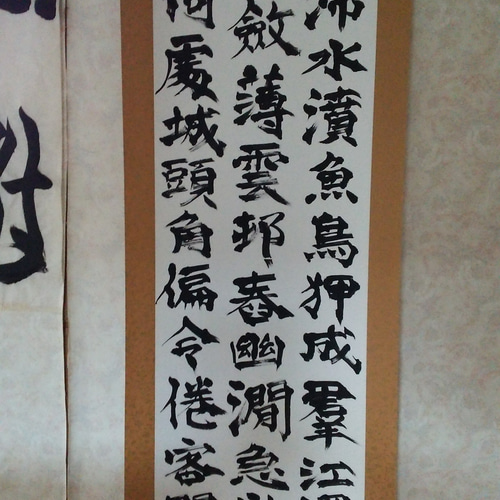 沛水濆魚鳥狎成羣江
斂薄雲邨春幽澗急
何處城頭角偏令倦客